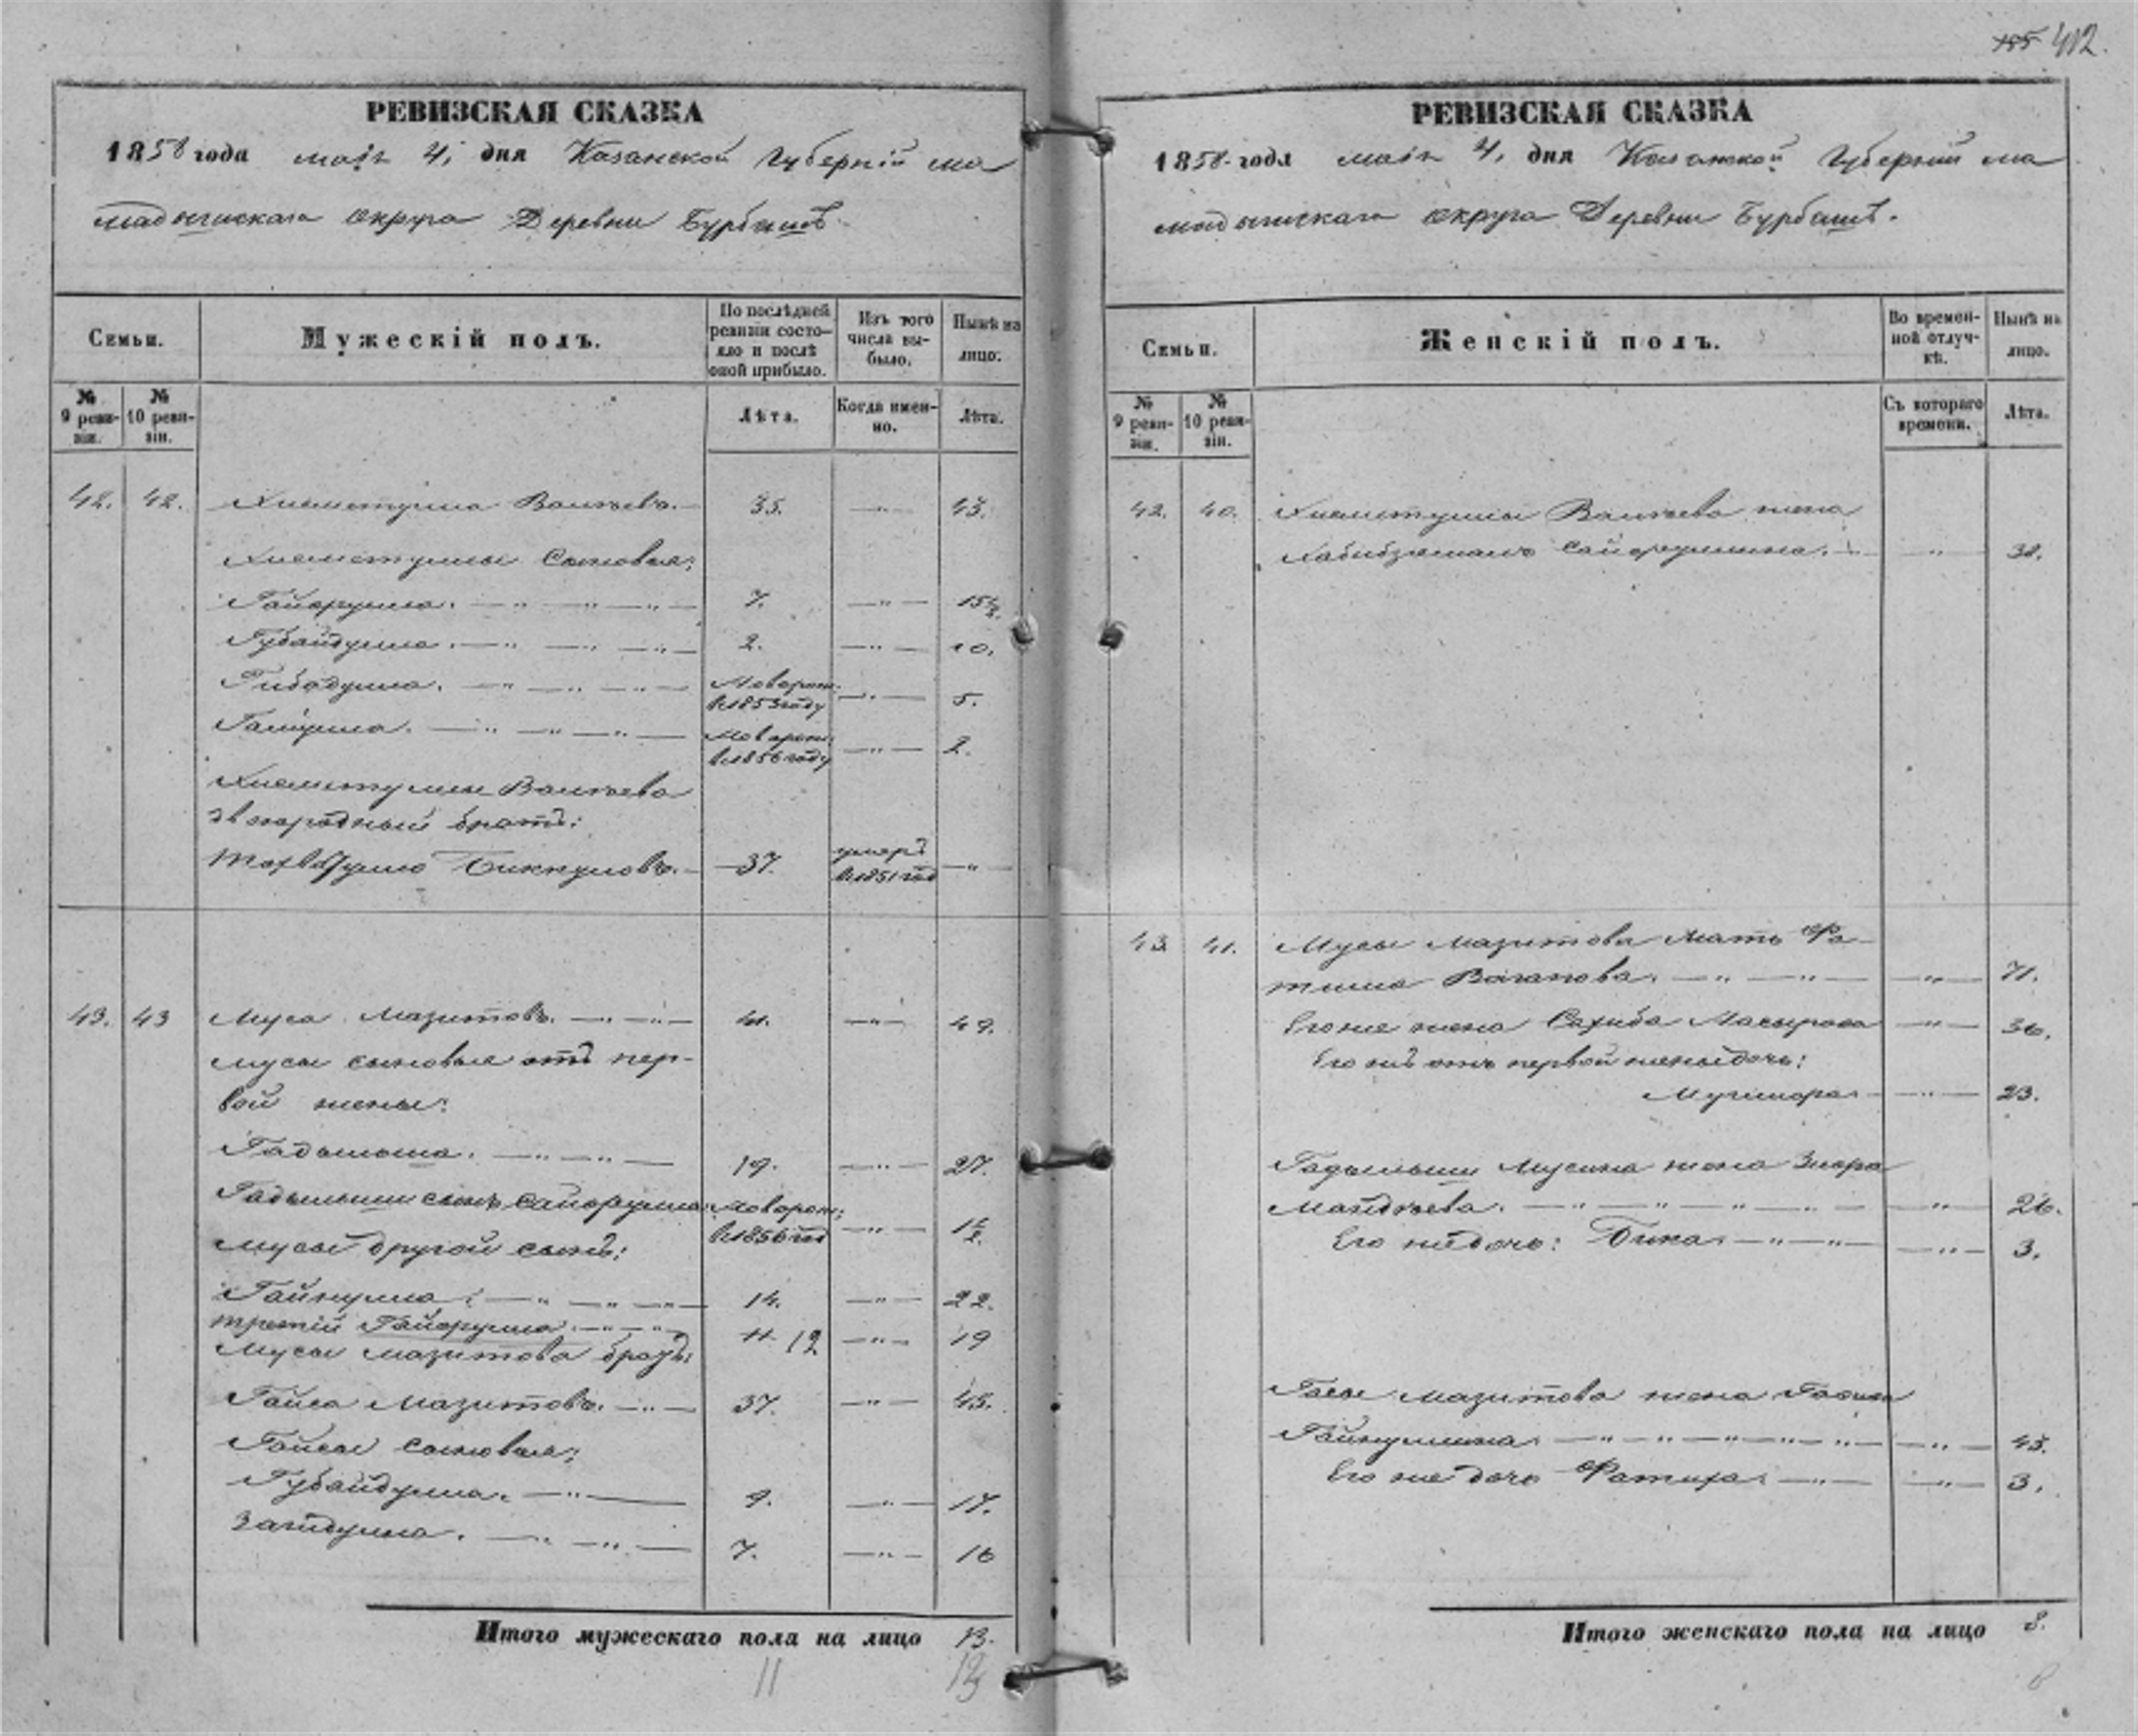 412.
РЕВИЗСКАЯ СКАЗКА
1858 года маія 4, дня Казанской Губерніи ма
мадышскаго округа Деревни Бурбашъ
Семьи.
Мужескій полъ.
По послѣдней ревизіи состояло и послѣ оной прибыло.
Изъ того числа выбыло.
Нынѣ на лицо.
№ 9 ревизіи.
№ 10 ревизіи.
Лѣта.
Когда именно.
Лѣта.
42. 42. Хисметулла Валитовъ. 35. — 43.
Хисметуллы Сыновья:
Гайфулла. 7. — 15
Губайдулла. 2. — 10.
Гибадулла. Новорож: в 1853 году — 5.
Новорож: в 1856 году — 2.
Хисметуллы
двоюродный братъ:
Биккуловъ. 37. умеръ в 1851 год —
43. 43 Муса Мазитовъ. 41. — 49.
Мусы сыновья отъ пер-
вой жены:
Гадильша. 19. — 27.
Гадильши сынъ Сайфулла новорож: в 1856 год —
Мусы другой сынъ:
Гайнулла. 14. — 22.
третій Гайфулла. 12 — 19
Мусы Мазитова братъ:
Гайса Мазитовъ. 37. — 45.
Гайсы сыновья:
Губайдулла. 9. — 17.
Загидулла. 7. — 16
Итого мужескаго пола на лицо 13.
11 13
РЕВИЗСКАЯ СКАЗКА
1858 года маія 4, дня Казанской Губерніи ма
мадышскаго округа Деревни Бурбашъ.
Семьи.
Женскій полъ.
Во временной отлучкѣ.
Нынѣ на лицо.
№ 9 ревизіи.
№ 10 ревизіи.
Съ котораго времени.
Лѣта.
42. 40. Хисметуллы жена
Хабибзямалъ Сайфуллина. — 38.
43 41. Мусы Мазитова Мать Фа-
тима Вагапова. — 71.
Его же жена Сахиба Насырова — 36.
Его жъ отъ первой жены дочь:
— 23.
Гадильши Мусина жена
— 26.
Его же дочь: Бика. — 3.
Гайсы Мазитова жена
Гайнуллина. — 43.
Его же дочь Фатиха. — 3.
Итого женскаго пола на лицо 8.
8